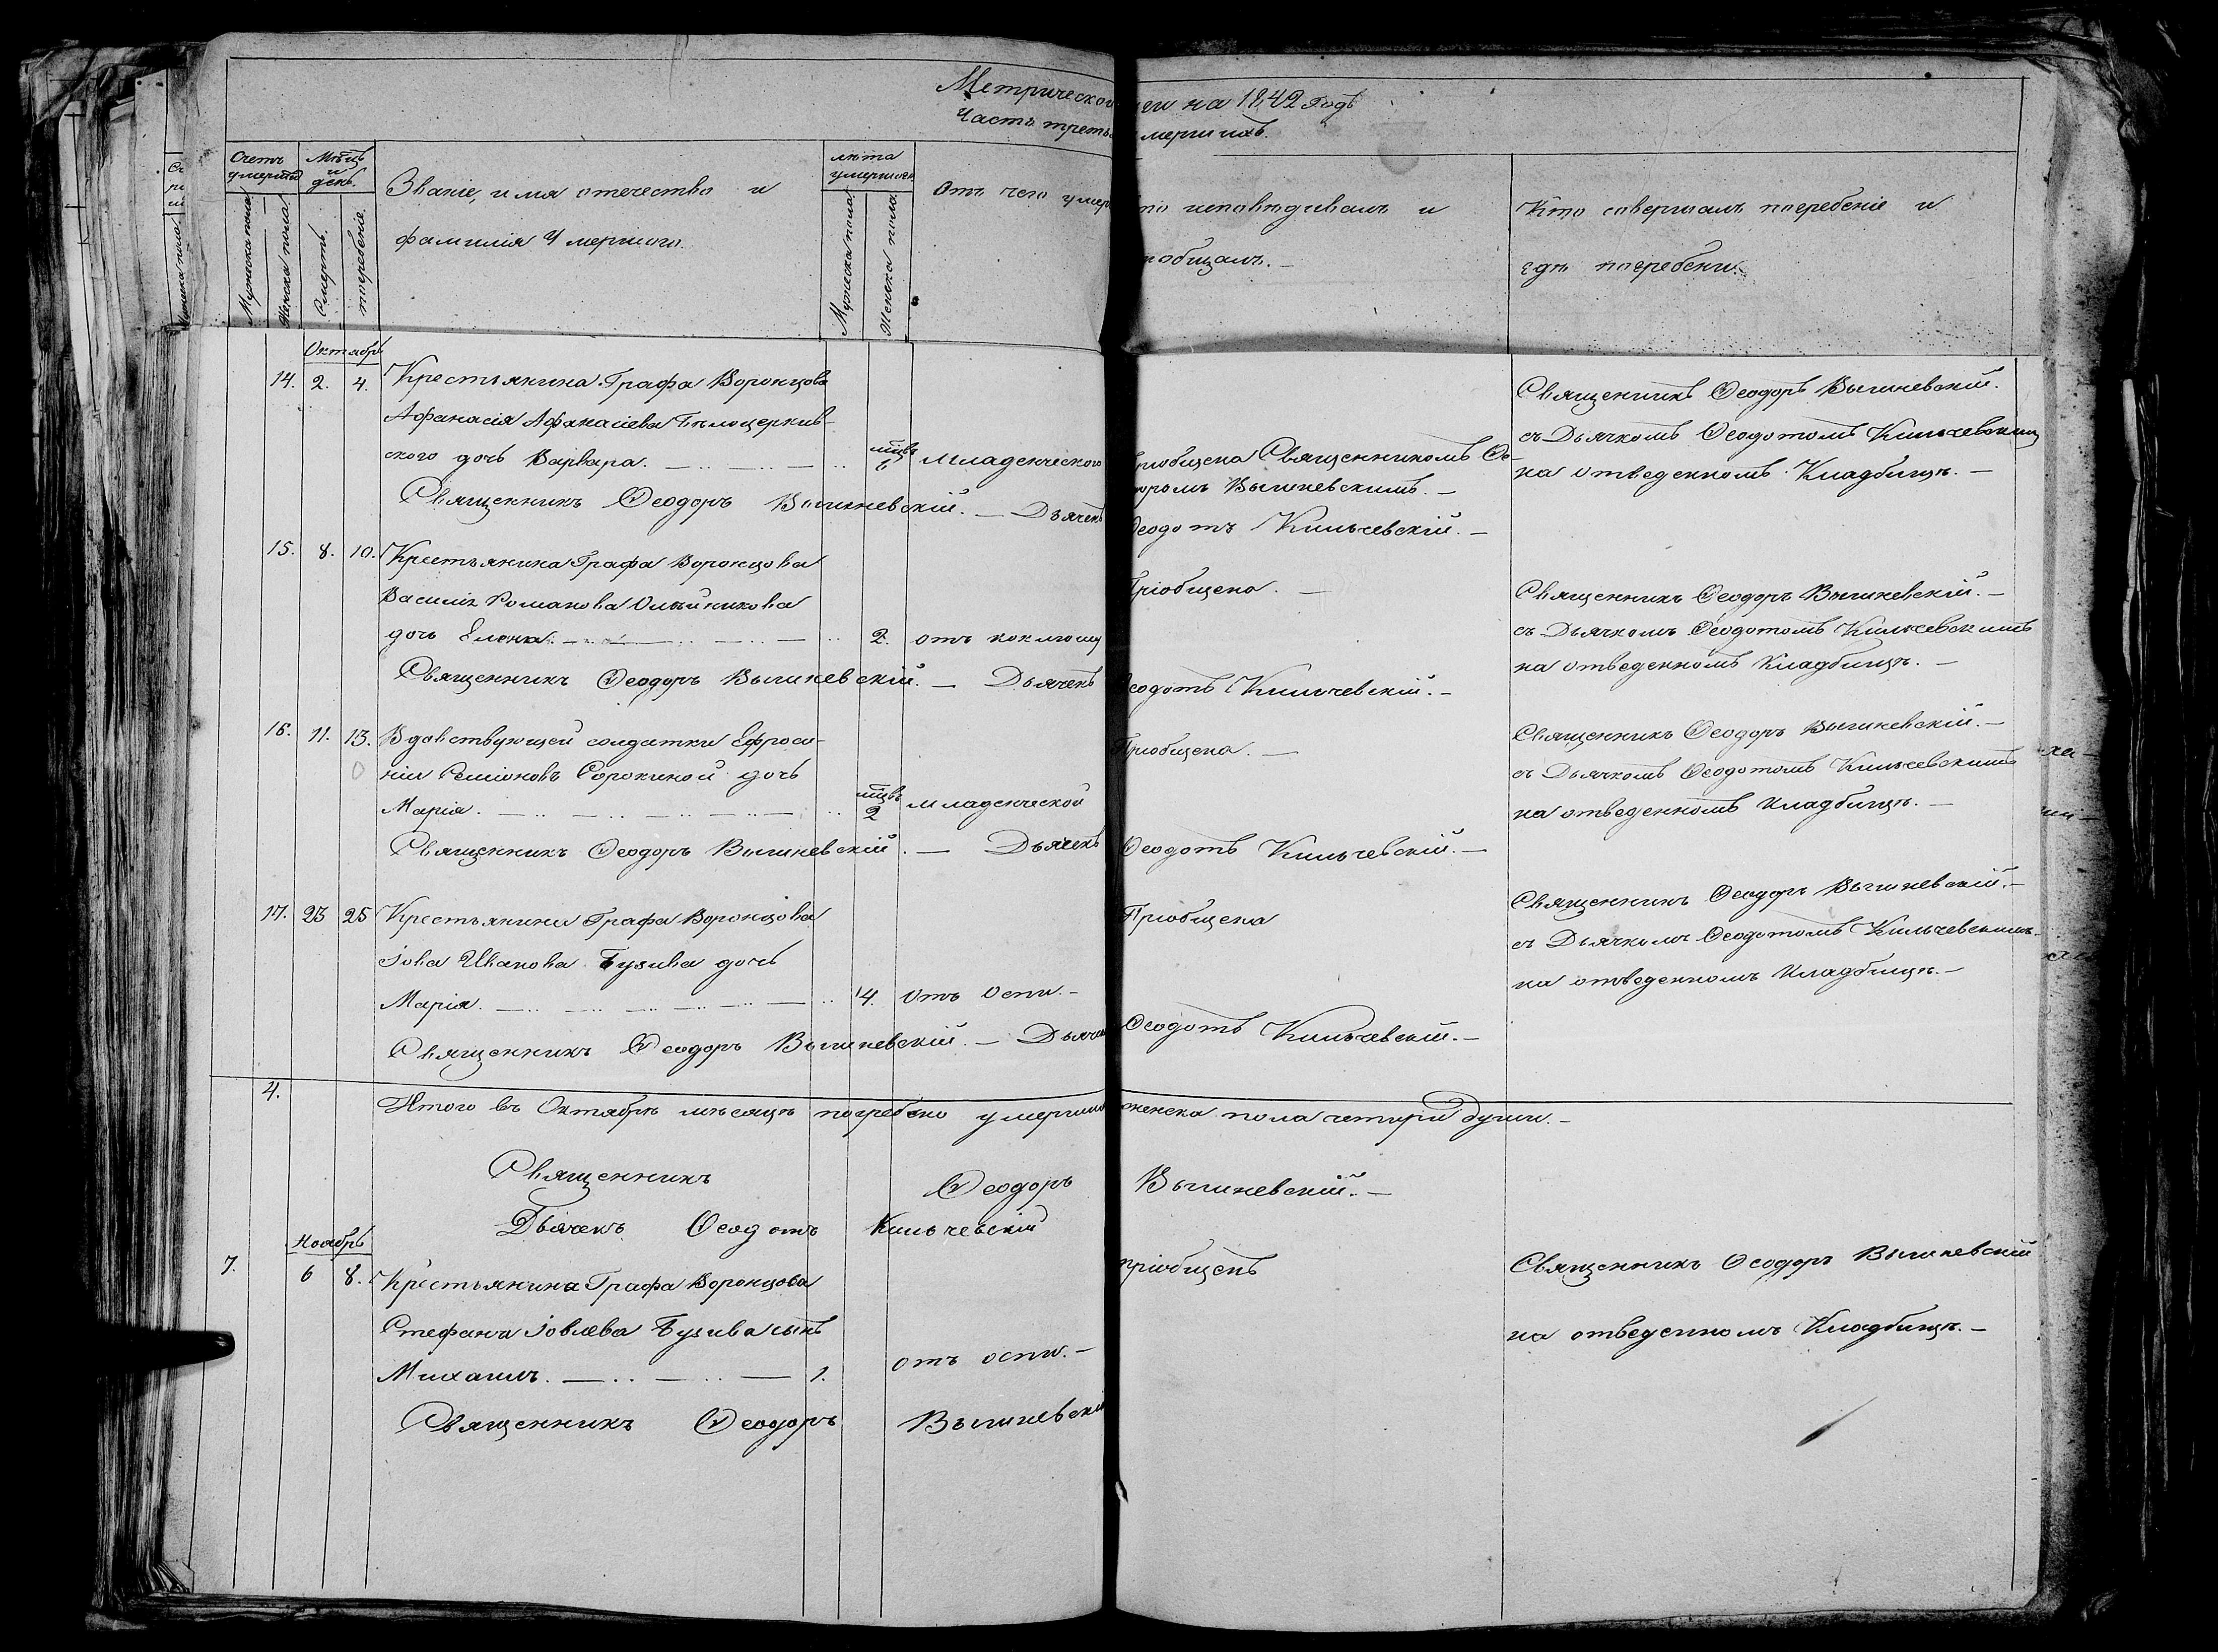 Метрической
Часть треть
ги на 1842 Годъ
мершихъ.
Счетъ умершихъ
Мѣсяцъ и день.
Званіе, имя отечество и
фамилія Умершого.
лѣта умершого
Отъ чего умер
то исповѣдивалъ и
іобщалъ. —
Кто совершалъ погребеніе и
гдѣ погребени.
Мужеска пола
Женска пола
Смерть.
погребеніе.
Мужеска пола
Женска пола
Октябрь
14. 2. 4. Крестьянина Графа Воронцова
Афанасія Афанасіева Бѣлоцеркив-
ского дочь Варвара. — 6 Младенческого
Священникъ Ѳеодоръ Вышневскій. — Дьячекъ
Пріобщена Священникомъ Ѳе-
доромъ Вышневскимъ. —
Ѳеодотъ Кильчевскій. —
Священникъ Ѳеодоръ Вышневскій.
съ Дьячкомъ Ѳеодотомъ Кильчевскимъ
на отведенномъ Кладбищѣ. —
15. 8. 10. Крестьянина Графа Воронцова
Василія Романова Олѣйникова
дочь Елена. — 2. отъ коклюшу
Священникъ Ѳеодоръ Вышневскій. — Дьячекъ
Пріобщена. —
Ѳеодотъ Кильчевскій. —
Священникъ Ѳеодоръ Вышневскій. —
съ Дьячкомъ Ѳеодотомъ Кильчевскимъ
на отведенномъ Кладбищѣ. —
16. 11. 13. Вдовствующей солдатки Ефроси-
ніи Сорокиной дочь
Марія. — 2 младенческой
Священникъ Ѳеодоръ Вышневскій. — Дьячекъ
Пріобщена. —
Ѳеодотъ Кильчевскій. —
Священникъ Ѳеодоръ Вышневскій. —
съ Дьячкомъ Ѳеодотомъ Кильчевскимъ
на отведенномъ Кладбищѣ. —
17. 23 25 Крестьянина Графа Воронцова
Іова Иванова Бузива дочь
Марія. — 4. Отъ Оспи. —
Священникъ Ѳеодоръ Вышневскій. — Дьячекъ
Пріобщена
Ѳеодотъ Кильчевскій. —
Священникъ Ѳеодоръ Вышневскій. —
съ Дьячкомъ Ѳеодотомъ Кильчевскимъ.
на отведенномъ Кладбищѣ. —
4. Итого въ Октябрѣ мѣсяцѣ погребено умершихъ женска пола четыри души. —
Священникъ Ѳеодоръ Вышневскій. —
Дьячекъ Ѳеодотъ Кильчевскій
Ноябрь
7. 6 8. Крестьянина Графа Воронцова
Стефана Іовлева Бузива сынъ
Михаилъ. — 1. отъ оспи. —
Священникъ Ѳеодоръ Вышневскій
пріобщенъ
Священникъ Ѳеодоръ Вышневскій
на отведенномъ Кладбищѣ. —